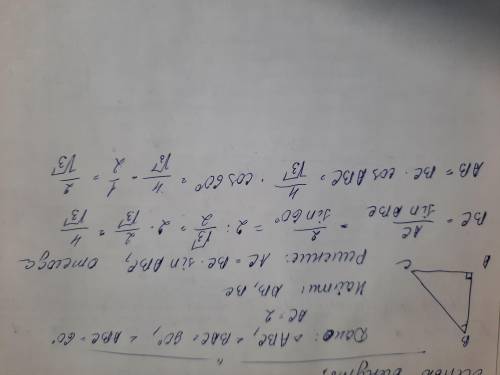 Дано: △ABC, ∠BAC = 90°, ∠ABC = 60°
AC = 2
Найти: AB, BC
Решение: AC = BC · sin ABC, отсюда
BC = AC / sin ABC = 2 / sin 60° = 2 : √3/2 = 2 · 2/√3 = 4/√3
AB = BC · cos ABC = 4/√3 · cos 60° = 4/√3 · 1/2 = 2/√3
B
A
C